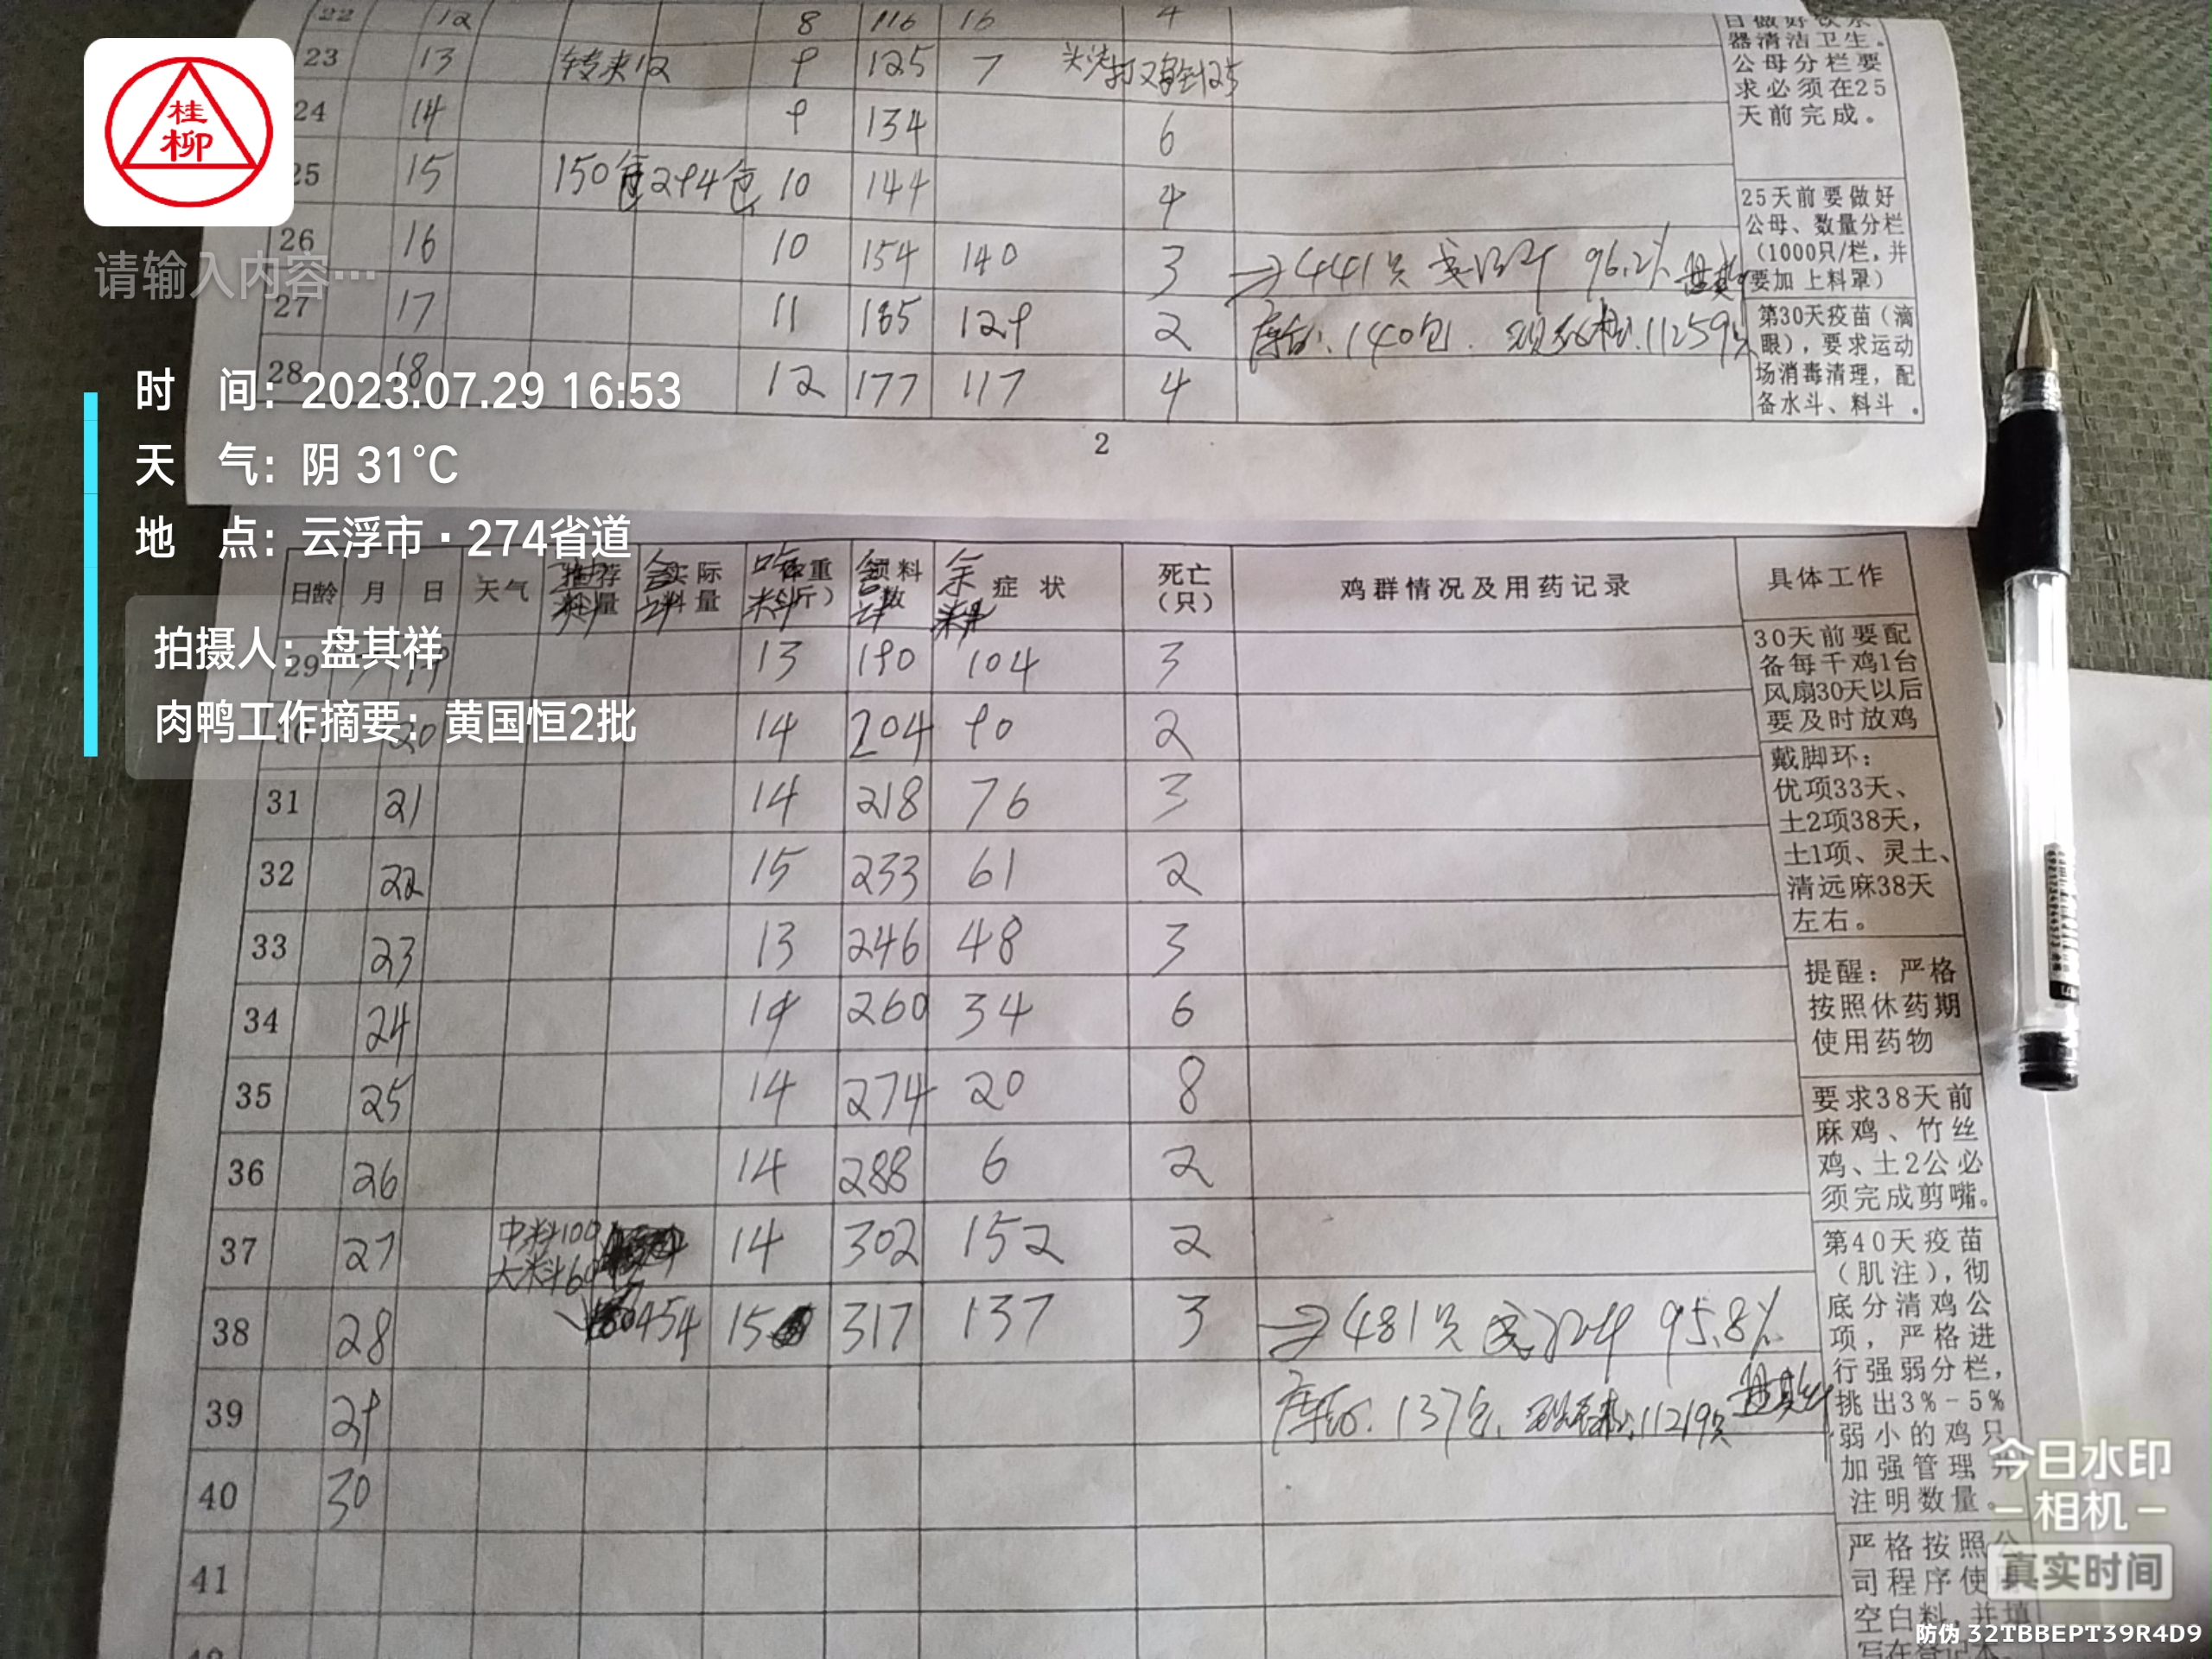 22 12 8 116 16 4
23 13 转来12 9 125 7
24 14 9 134 6
25 15 150包 294包 10 144 4
26 16 10 154 140 3 441只 96.2%
27 17 11 165 129 2 140包 11259只
28 18 12 177 117 4
器清洁卫生。
公母分栏要
求必须在25
天前完成。
25天前要做好
公母、数量分栏
（1000只/栏，并
要加 上料罩）
第30天疫苗（滴
眼），要求运动
场消毒清理，配
备水斗、料斗。
2
桂
柳
请输入内容…
时 间：2023.07.29 16:53
天 气：阴 31℃
地 点：云浮市·274省道
拍摄人：盘其祥
肉鸭工作摘要：黄国恒2批
日龄 月 日 天气 实际 症状 死亡（只） 鸡群情况及用药记录 具体工作
吃料 合计 余料
29 19 13 190 104 3
20 14 204 90 2
31 21 14 218 76 3
32 22 15 233 61 2
33 23 13 246 48 3
34 24 14 260 34 6
35 25 14 274 20 8
36 26 14 288 6 2
37 27 中料100 大料60 14 302 152 2
38 28 454 15 317 137 3 481只 95.8%
39 29 137包 11219只
40 30
41
30天前要配
备每千鸡1台
风扇30天以后
要及时放鸡
戴脚环：
优项33天、
土2项38天，
土1项、灵土、
清远麻38天
左右。
提醒：严格
按照休药期
使用药物
要求38天前
麻鸡、竹丝
鸡、土2公必
须完成剪嘴。
第40天疫苗
（肌注），彻
底分清鸡公
项，严格进
行强弱分栏，
挑出3%-5%
弱小的鸡只
加强管理
注明数量。
严格按照公
司程序使
空白料，并填
今日水印
相机
真实时间
防伪 32TBBEPT39R4D9